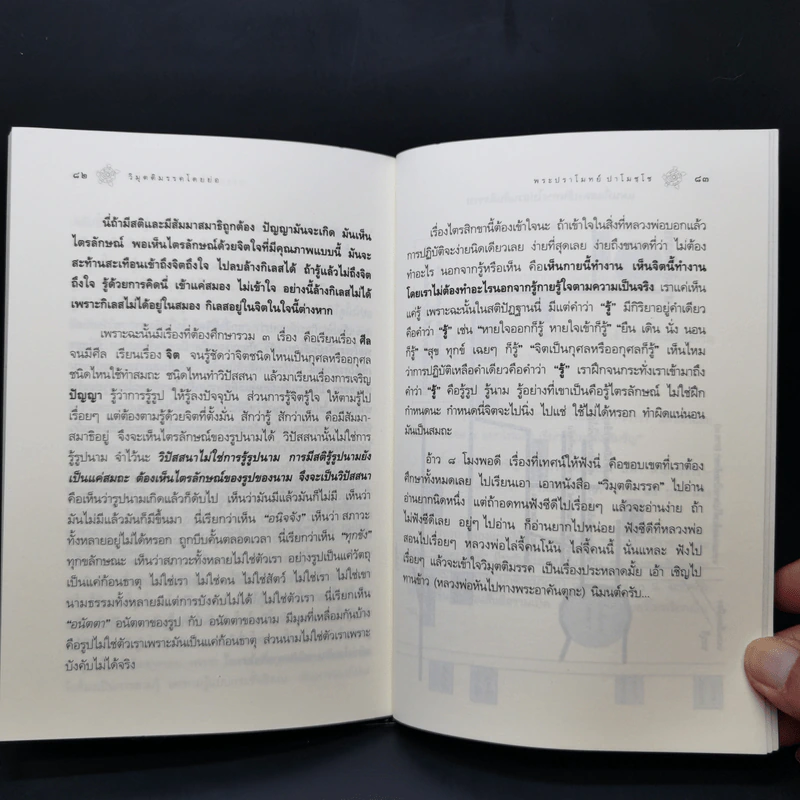 ๘๒
วิมุตติมรรคโดยย่อ
นี่ถ้ามีสติและมีสัมมาสมาธิถูกต้อง ปัญญามันจะเกิด มันเห็น
ไตรลักษณ์ พอเห็นไตรลักษณ์ด้วยจิตใจที่มีคุณภาพแบบนี้ มันจะ
สะท้านสะเทือนเข้าถึงจิตถึงใจ ไปลบล้างกิเลสได้ ถ้ารู้แล้วไม่ถึงจิต
ถึงใจ รู้ด้วยการคิดนี่ เข้าแค่สมอง ไม่เข้าใจ อย่างนี้ล้างกิเลสไม่ได้
เพราะกิเลสไม่ได้อยู่ในสมอง กิเลสอยู่ในจิตในใจนี้ต่างหาก
เพราะฉะนั้นมีเรื่องที่ต้องศึกษารวม ๓ เรื่อง คือเรียนเรื่อง ศีล
จนมีศีล เรียนเรื่อง จิต จนรู้ชัดว่าจิตชนิดไหนเป็นกุศลหรืออกุศล
ชนิดไหนใช้ทำสมถะ ชนิดไหนทำวิปัสสนา แล้วมาเรียนเรื่องการเจริญ
ปัญญา รู้ว่าการรู้รูป ให้รู้ลงปัจจุบัน ส่วนการรู้จิตรู้ใจ ให้ตามรู้ไป
เรื่อยๆ แต่ต้องตามรู้ด้วยจิตที่ตั้งมั่น สักว่ารู้ สักว่าเห็น คือมีสัมมา-
สมาธิอยู่ จึงจะเห็นไตรลักษณ์ของรูปนามได้ วิปัสสนานั้นไม่ใช่การ
รู้รูปนาม จำไว้นะ วิปัสสนาไม่ใช่การรู้รูปนาม การมีสติรู้รูปนามยัง
เป็นแค่สมถะ ต้องเห็นไตรลักษณ์ของรูปของนาม จึงจะเป็นวิปัสสนา
คือเห็นว่ารูปนามเกิดแล้วก็ดับไป เห็นว่ามันมีแล้วมันก็ไม่มี เห็นว่า
มันไม่มีแล้วมันก็มีขึ้นมา นี่เรียกว่าเห็น “อนิจจัง” เห็นว่า สภาวะ
ทั้งหลายอยู่ไม่ได้หรอก ถูกบีบคั้นตลอดเวลา นี่เรียกว่าเห็น “ทุกขัง”
ทุกขลักษณะ เห็นว่าสภาวะทั้งหลายไม่ใช่ตัวเรา อย่างรูปเป็นแค่วัตถุ
เป็นแค่ก้อนธาตุ ไม่ใช่เรา ไม่ใช่คน ไม่ใช่สัตว์ ไม่ใช่เรา ไม่ใช่เขา
นามธรรมทั้งหลายมีแต่การบังคับไม่ได้ ไม่ใช่ตัวเรา นี่เรียกว่าเห็น
“อนัตตา” อนัตตาของรูป กับ อนัตตาของนาม มีมุมที่เหลื่อมกันบ้าง
คือรูปไม่ใช่ตัวเราเพราะมันเป็นแค่ก้อนธาตุ ส่วนนามไม่ใช่ตัวเราเพราะ
บังคับไม่ได้จริง
พระปราโมทย์ ปาโมชฺโช
๘๓
เรื่องไตรสิกขานี้ต้องเข้าใจนะ ถ้าเข้าใจในสิ่งที่หลวงพ่อบอกแล้ว
การปฏิบัติจะง่ายนิดเดียวเลย ง่ายที่สุดเลย ง่ายถึงขนาดที่ว่า ไม่ต้อง
ทำอะไร นอกจากรู้หรือเห็น คือเห็นกายนี้ทำงาน เห็นจิตนี้ทำงาน
โดยเราไม่ต้องทำอะไรนอกจากรู้กายรู้ใจตามความเป็นจริง เราแค่เห็น
แค่รู้ เพราะฉะนั้นในสติปัฏฐานนี่ มีแต่คำว่า “รู้” มีกิริยาอยู่คำเดียว
คือคำว่า “รู้” เช่น “หายใจออกก็รู้ หายใจเข้าก็รู้” “ยืน เดิน นั่ง นอน
ก็รู้” “สุข ทุกข์ เฉยๆ ก็รู้” “จิตเป็นกุศลหรืออกุศลก็รู้” เห็นไหม
ว่าการปฏิบัติเหลือคำเดียวคือคำว่า “รู้” เราฝึกจนกระทั่งเราเข้ามาถึง
คำว่า “รู้” คือรู้รูป รู้นาม รู้อย่างที่เขาเป็นคือรู้ไตรลักษณ์ ไม่ใช่ฝึก
กำหนดนะ กำหนดนี่จิตจะไปนิ่ง ไปแช่ ใช้ไม่ได้หรอก ทำผิดแน่นอน
มันเป็นสมถะ
อ้าว ๘ โมงพอดี เรื่องที่เทศน์ให้ฟังนี่ คือขอบเขตที่เราต้อง
ศึกษาทั้งหมดเลย ไปเรียนเอา เอาหนังสือ “วิมุตติมรรค” ไปอ่าน
อ่านยากนิดหนึ่ง แต่ถ้าอดทนฟังซีดีไปเรื่อยๆ แล้วจะอ่านง่าย ถ้า
ไม่ฟังซีดีเลย อยู่ๆ ไปอ่าน ก็อ่านยากไปหน่อย ฟังซีดีที่หลวงพ่อ
สอนไปเรื่อยๆ หลวงพ่อไล่จี้คนโน้น ไล่จี้คนนี้ นั่นแหละ ฟังไป
เรื่อยๆ แล้วจะเข้าใจวิมุตติมรรค เป็นเรื่องประหลาดมั้ย เอ้า เชิญไป
ทานข้าว (หลวงพ่อหันไปทางพระอาคันตุกะ) นิมนต์ครับ...